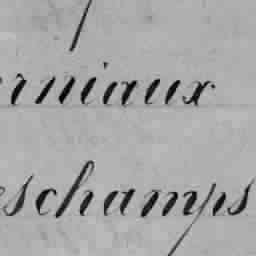 erniaux
eschamps